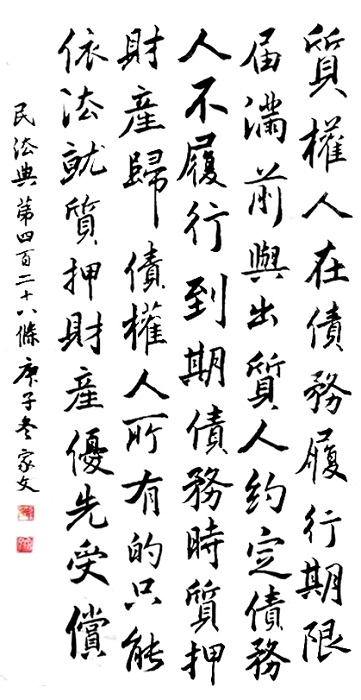 質權人在債務履行期限
届滿前與出質人約定債務
人不履行到期債務時質押
財產歸債權人所有的只能
依法就質押財產優先受償
民法典第四百二十八條庚子冬家文